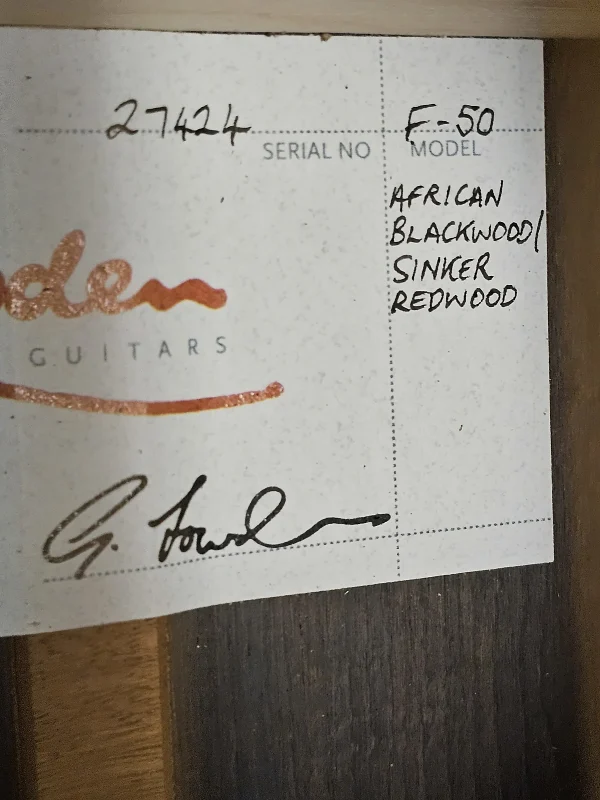 27424 F-50
SERIAL NO MODEL
AFRICAN
BLACKWOOD/
SINKER
REDWOOD
den
GUITARS
G. Lowden